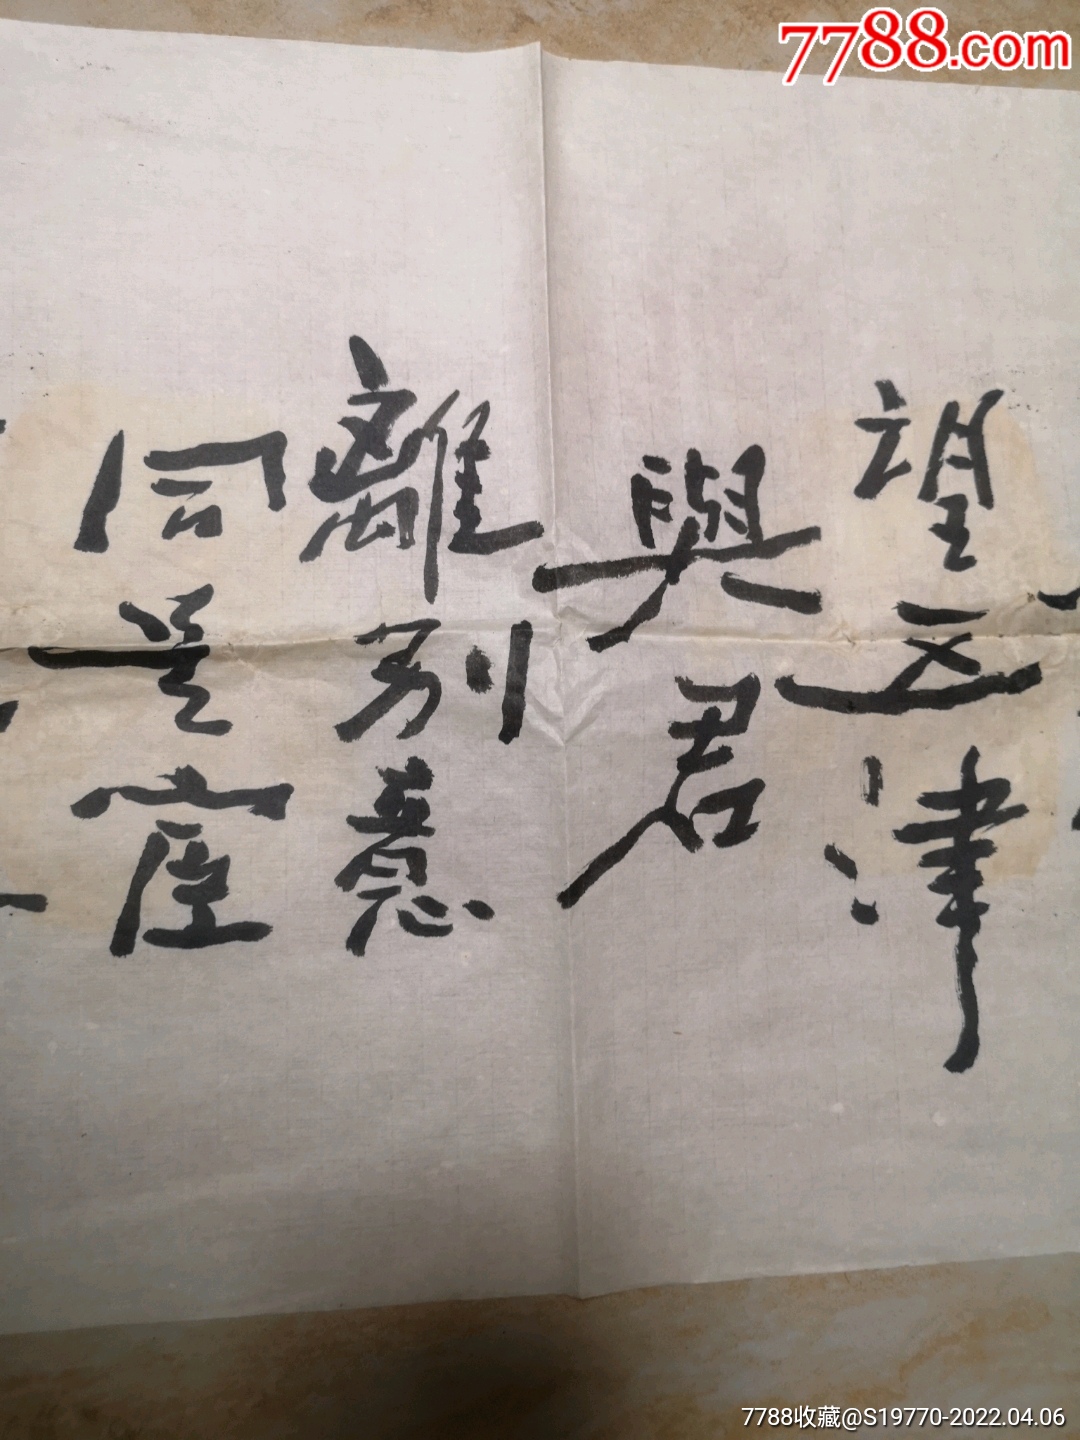 7788.com
望五津
與君
離别意
同是宦
7788收藏@S19770-2022.04.06